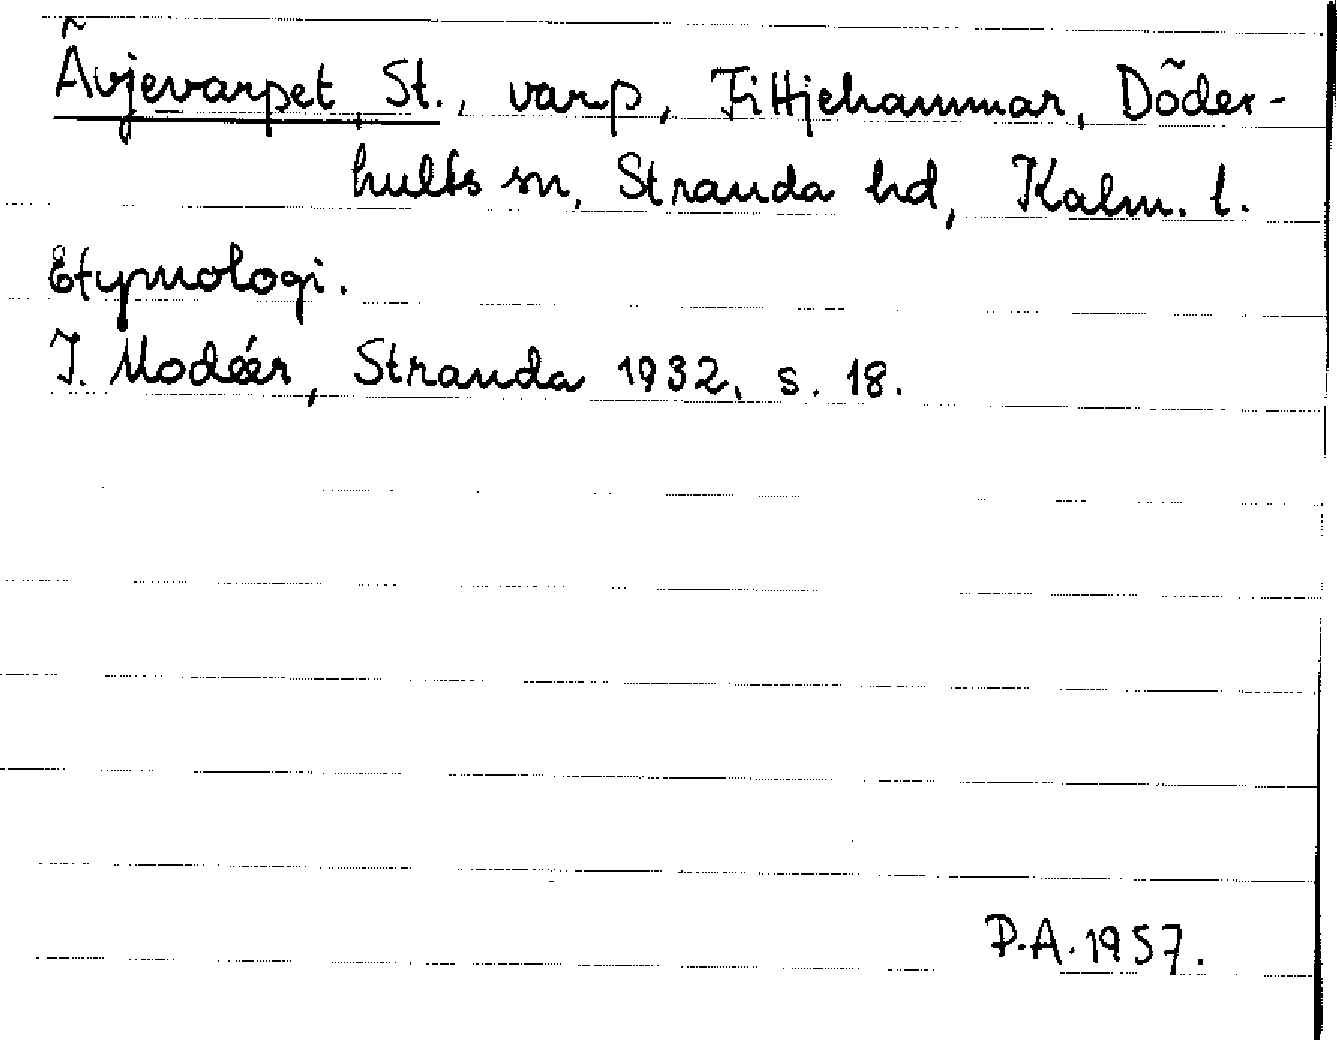 Ävjevarpet, St., varp, Fittjehammar, Döder-
hults sn, Stranda hd, Kalm. l.
Etymologi.
I. Modéer, Stranda 1932, s. 18.
P.A. 1957.